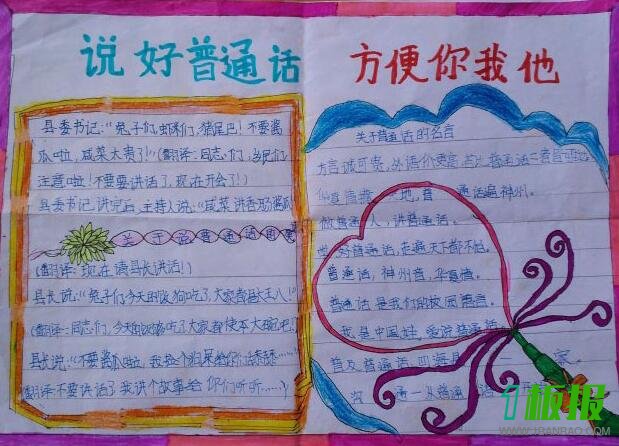 说好普通话 方便你我他
县委书记:“兔子们,虾米们,猪尾巴!不要酱
瓜啦,咸菜太贵了!”(翻译:同志们,乡民们
注意啦!不要讲话了,现在开会了!)
县委书记讲完后,主持人说:“咸菜请香肠酱瓜
关于说普通话
(翻译:现在请县长讲话!)
县长说:“兔子们,今天的饭狗吃了,大家都是大王八!”
(翻译:同志们,今天的饭够吃了,大家都使大碗吧!
县长说:“不要酱瓜啦,我捡个狗屎给你们舔舔……
翻译:不要讲话了,我讲个故事给你们听听……)
关于普通话的名言
方言诚可贵,外语价更高,若比普通话
地,普通话遍神州。
做普通人,讲普通话。
好普通话,走遍天下都不怕。
普通话,神州音,华夏情。
普通话是我们的校园语言。
我是中国娃,爱说普通话
普及普通话,四海是一家
通——从普通话开
板报
WWW.1BANBAO.COM